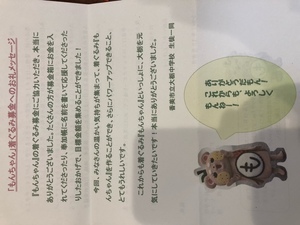 「もんちゃん」着ぐるみ募金へのお礼メッセージ
「もんちゃん」の着ぐるみ募金にご協力いただき、本当に
ありがとうございました。たくさんの方が募金箱にお金を入
れてくださったり、奉加帳に名前を書いて応援してくださった
りしたおかげで、目標金額を集めることができました！
今回、みなさんの温かい気持ちが集まって、着ぐるみ『も
んちゃん』を作ることができ、さらにパワーアップできること、
とてもうれしいです。
これからも着ぐるみ『もんちゃん』といっしょに、大栃を元
気にしていきたいです。本当にありがとうございました。
香美市立大栃中学校 生徒一同
ありがとうだもん！
これからも、よろしく
もんねー！
も